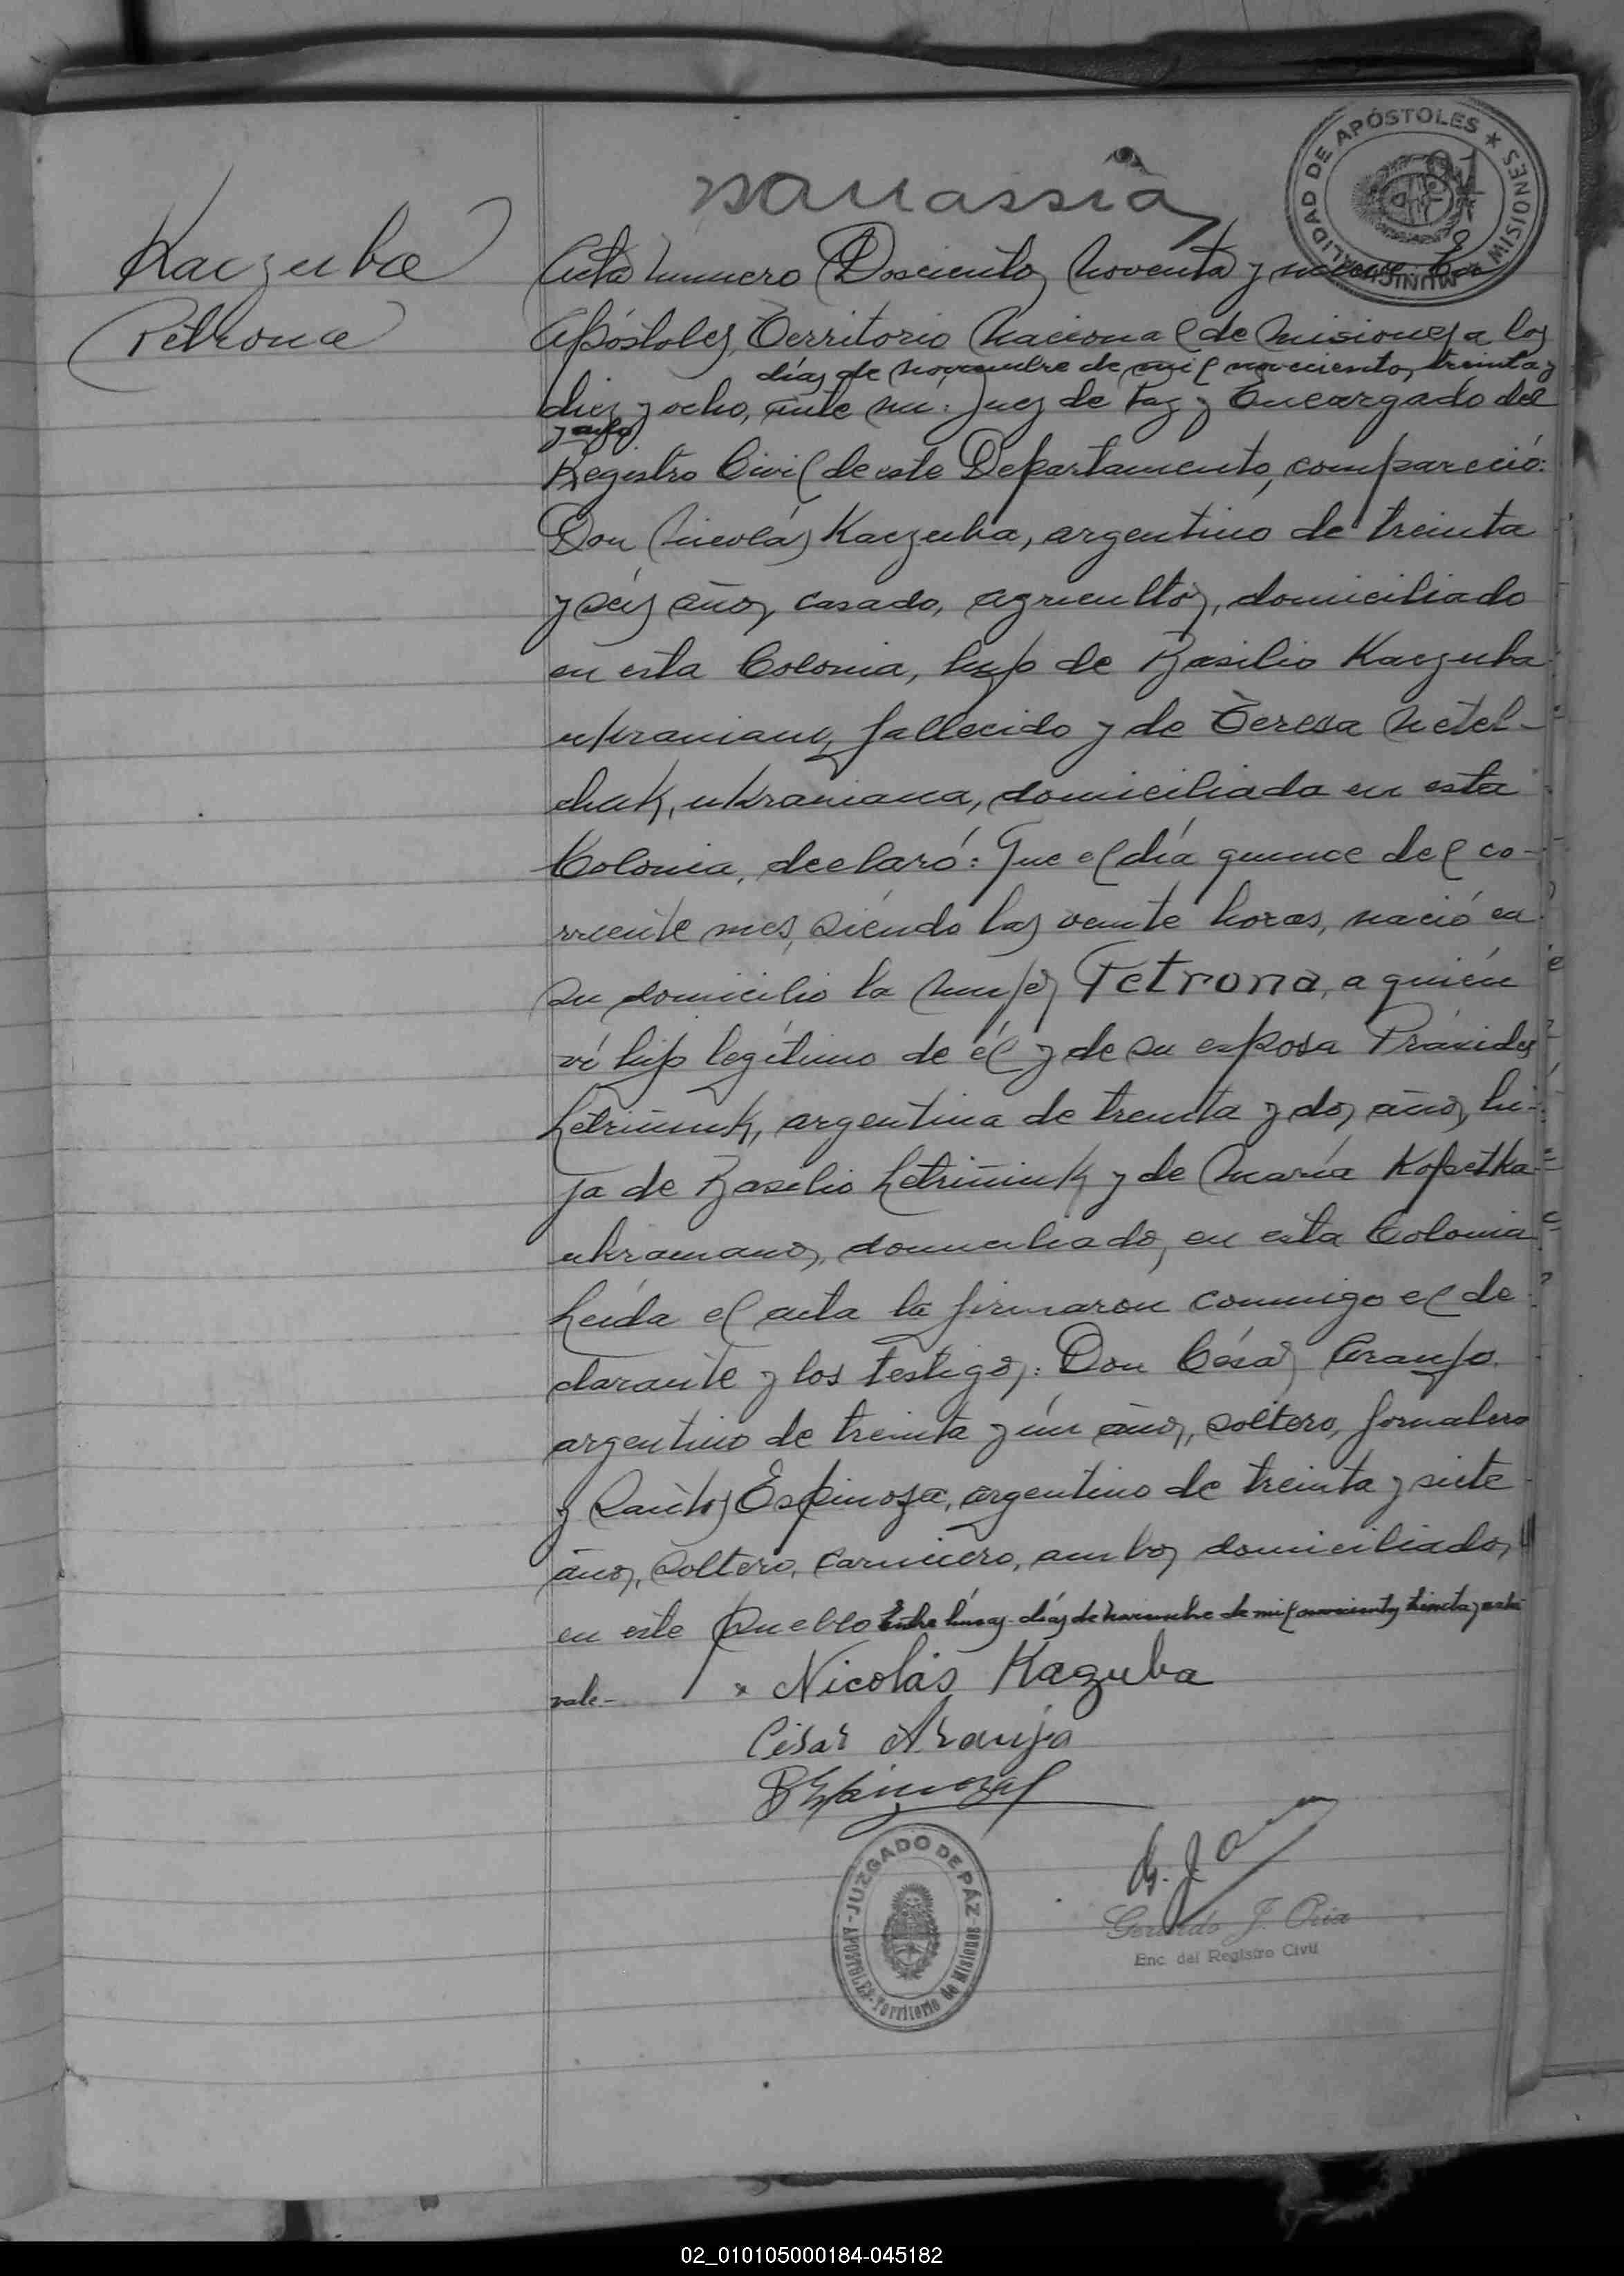 MUNICIPALIDAD DE APÓSTOLES ★ MISIONES
Kaczuba
Petrona
Acta número Doscientos Noventa y nueve. En
Apóstoles, Territorio Nacional de Misiones, a los
días de Noviembre de mil novecientos treinta y
diez y ocho, ante mí: Juez de Paz y Encargado del
y ocho
Registro Civil de este Departamento, compareció:
Don Nicolás Kaczuba, argentino de treinta
y séis años, casado, agricultor, domiciliado
en esta Colonia, hijo de Basilio Kaczuba
ukraniano, fallecido y de Teresa Netel-
chak, ukraniana, domiciliada en esta
Colonia, declaró: Que el día quince del co-
rriente mes, siéndo las veinte horas, nació en
su domicilio la mujer Petrona, a quién
ví hijo legítimo de él y de su esposa Práxides
Letriñuk, argentina de treinta y dos años, hi-
ja de Basilio Letriñiuk y de María Kopetka
ukranianos, domiciliados, en esta Colonia
Leída el acta la firmaron conmigo el de
clarante y los testigos: Don César Araujo
argentino de treinta y ún años, soltero, jornalero
y Santos Espinoza, argentino de treinta y siete
años, soltero, carnicero, ambos domiciliados
en este Pueblo Entre líneas - días de Noviembre de mil novecientos treinta y ocho
vale-
x Nicolás Kazuba
César Araujo
SEspinoza
JUZGADO DE PÁZ
APOSTOLES - Territorio de Misiones
G. J. O
Gerardo J. Oria
Enc. del Registro Civil
02_010105000184-045182